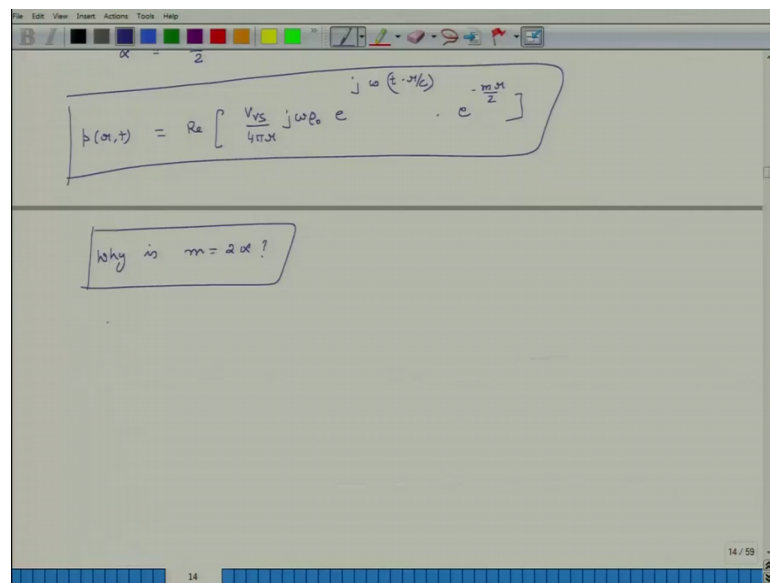 File Edit View Insert Actions Tools Help
B I
α = 2
p(r,t) = Re [ V_vs / 4πr jωρ₀ e^{jω(t - r/c)} . e^{-mr/2} ]
Why is m = 2α ?
14 / 59
14